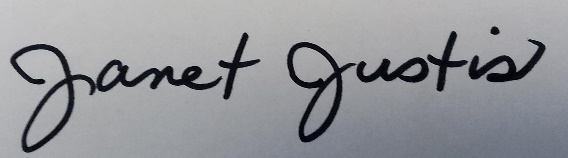 Janet Justis